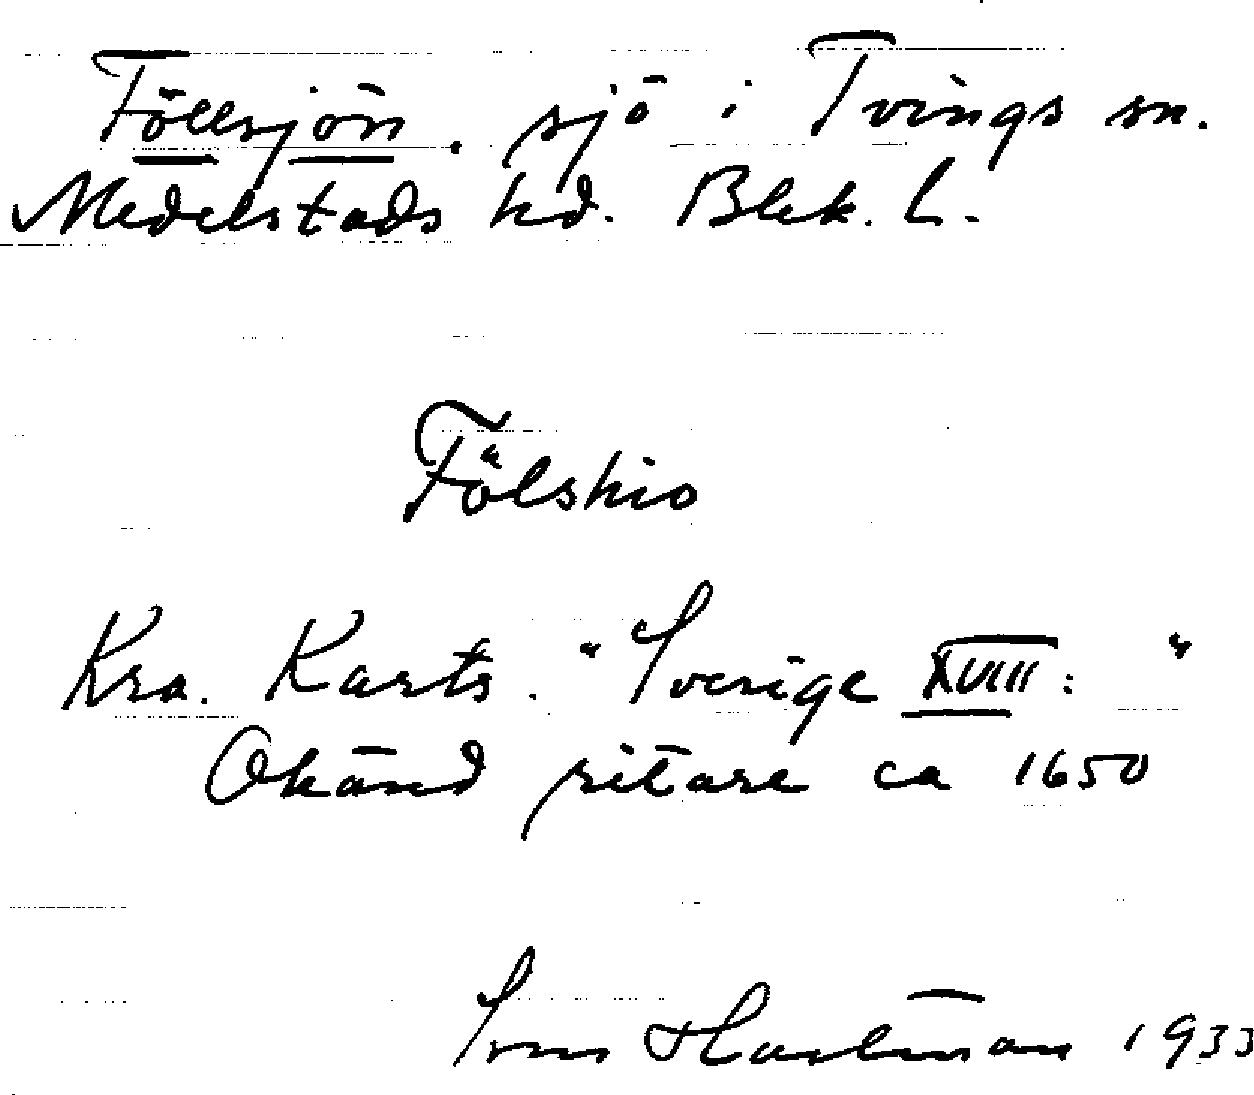 Föllsjön, sjö i Tvings sn.
Medelstads hd. Blek. L.
Fölskio
Kra. Karts. "Sverige XVIII: "
Okänd ritare ca 1650
Sven Hartman 1933